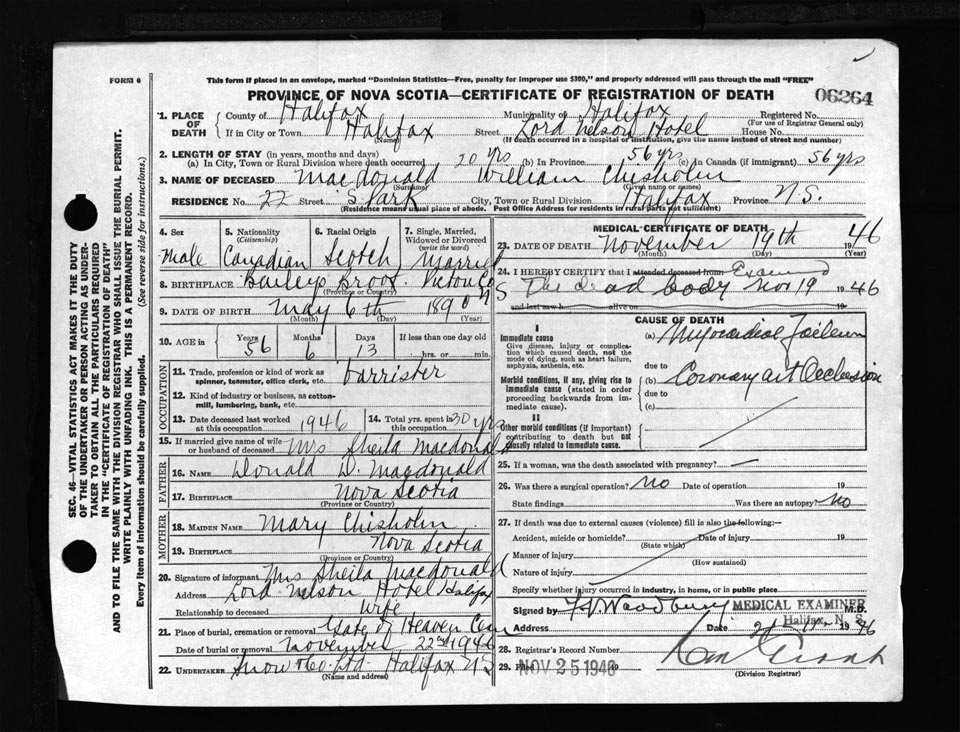 FORM 6
This form if placed in an envelope, marked "Dominion Statistics—Free, penalty for improper use $300," and properly addressed will pass through the mail "FREE"
PROVINCE OF NOVA SCOTIA—CERTIFICATE OF REGISTRATION OF DEATH
06264
1. PLACE OF DEATH County of Halifax Municipality of Halifax Registered No.
(For use of Registrar General only)
If in City or Town Halifax Street Lord Nelson Hotel House No.
(Name) (If death occurred in a hospital or institution, give the name instead of street and number)
2. LENGTH OF STAY (in years, months and days)
(a) In City, Town or Rural Division where death occurred 20 yrs (b) In Province 56 yrs (c) In Canada (if immigrant) 56 yrs
3. NAME OF DECEASED Macdonald William Chisholm
(Surname) (Given name or names)
RESIDENCE No. 22 Street S Park City, Town or Rural Division Halifax Province N.S.
(Residence means usual place of abode. Post Office Address for residents in rural parts not sufficient)
4. Sex 5. Nationality (Citizenship) 6. Racial Origin 7. Single, Married, Widowed or Divorced (write the word)
Male Canadian Scotch Married
8. BIRTHPLACE Baileys Brook Pictou Co NS
(Province or Country)
9. DATE OF BIRTH May 6th 1890
(Month) (Day) (Year)
10. AGE in Years Months Days If less than one day old
56 6 13 hrs. or min.
OCCUPATION
11. Trade, profession or kind of work as spinner, teamster, office clerk, etc. barrister
12. Kind of industry or business, as cotton-mill, lumbering, bank, etc.
13. Date deceased last worked at this occupation 1946 14. Total yrs. spent in this occupation 30 yrs
15. If married give name of wife or husband of deceased Mrs Sheila Macdonald
FATHER
16. NAME Donald D. Macdonald
17. BIRTHPLACE Nova Scotia
(Province or Country)
MOTHER
18. MAIDEN NAME Mary Chisholm
19. BIRTHPLACE Nova Scotia
(Province or Country)
20. Signature of informant Mrs Sheila Macdonald
Address Lord Nelson Hotel Halifax
Relationship to deceased wife
21. Place of burial, cremation or removal Gate of Heaven Cem
Date of burial or removal November 22nd 1946
22. UNDERTAKER Snow & Co. Ltd. Halifax NS
(Name and address)
MEDICAL CERTIFICATE OF DEATH
23. DATE OF DEATH November 19th 1946
(Month) (Day) (Year)
24. I HEREBY CERTIFY that I attended deceased from Examined
The dead body Nov 19 1946
and last saw h alive on 19
CAUSE OF DEATH
I
Immediate cause
Give disease, injury or complication which caused death, not the mode of dying, such as heart failure, asphyxia, asthenia, etc.
(a) Myocardial Failure
due to
Morbid conditions, if any, giving rise to immediate cause (stated in order proceeding backwards from immediate cause).
(b) Coronary art Occlusion
due to
(c)
II
Other morbid conditions (if important) contributing to death but not causally related to immediate cause.
25. If a woman, was the death associated with pregnancy?
26. Was there a surgical operation? No Date of operation 19
State findings Was there an autopsy? No
27. If death was due to external causes (violence) fill in also the following:—
Accident, suicide or homicide? Date of injury 19
(State which)
Manner of injury
(How sustained)
Nature of injury
Specify whether injury occurred in industry, in home, or in public place
Signed by Woodbury M.D.
MEDICAL EXAMINER
Halifax, N. S.
Address Date 1946
28. Registrar's Record Number
29. Filed NOV 25 1946
(Division Registrar)
SEC. 46—VITAL STATISTICS ACT MAKES IT THE DUTY OF THE UNDERTAKER OR PERSON ACTING AS UNDERTAKER TO OBTAIN ALL THE PARTICULARS REQUIRED IN THE "CERTIFICATE OF REGISTRATION OF DEATH"
AND TO FILE THE SAME WITH THE DIVISION REGISTRAR WHO SHALL ISSUE THE BURIAL PERMIT.
WRITE PLAINLY WITH UNFADING INK. THIS IS A PERMANENT RECORD.
Every item of information should be carefully supplied. (See reverse side for instructions.)